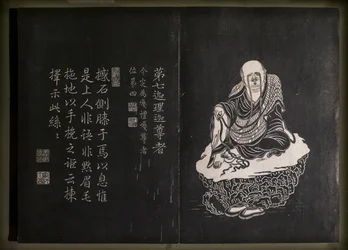 第七迦理迦尊者
今定為嘎禮嘎尊者
位第四
據石側膝于焉以息惟
是上人非語非默眉毛
拖地以手挽之詎云揀
擇示此絲〻